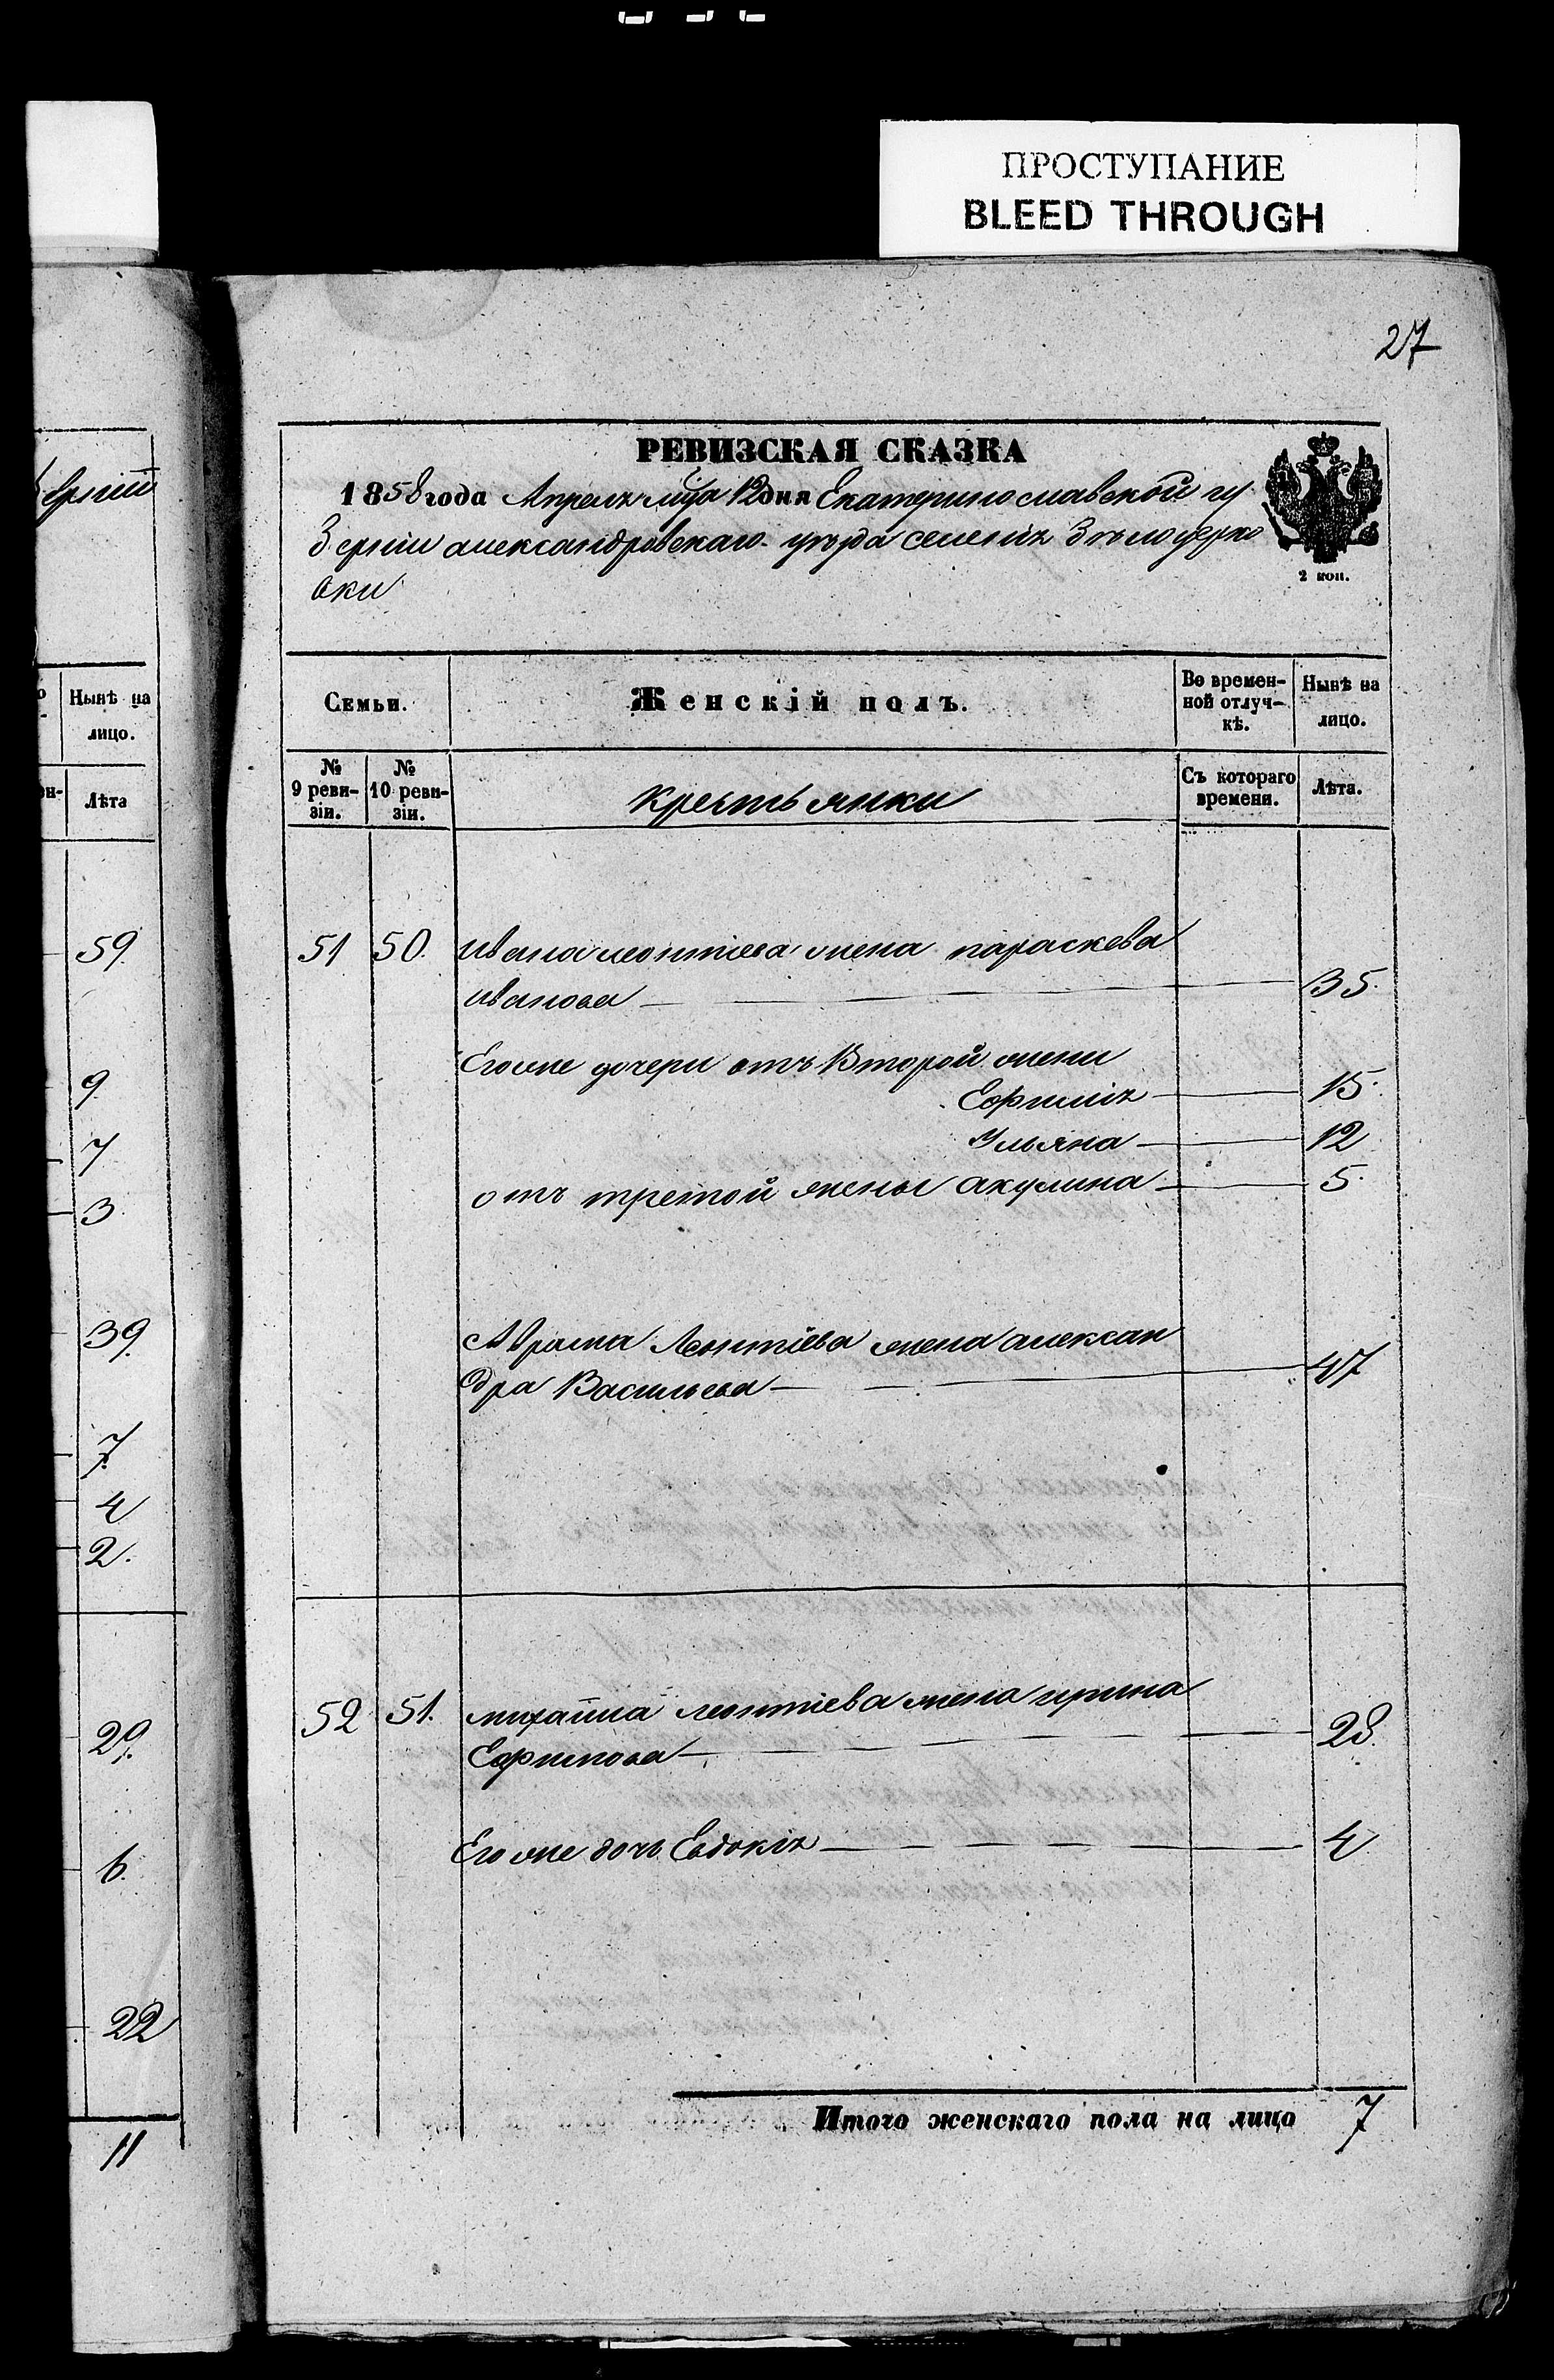 ПРОСТУПАНИЕ
BLEED THROUGH
27
РЕВИЗСКАЯ СКАЗКА
1858 года Апреля м͠ца 12 дня Екатеринославской гу
берніи александровскаго уѣзда селенія Бѣлоцерко
вки
2 коп.
Семьи.
Женскій полъ.
Во времен-
ной отлуч-
кѣ.
Нынѣ на
лицо.
№
9 реви-
зіи.
№
10 реви-
зіи.
крестьянки
Съ котораго
времени.
Лѣта.
51 50. Ивана леонтіева жена параскева
иванова 35.
Егоже дочери отъ Второй жени
Ефимія 15.
Ульяна 12
отъ третой жены акулина 5.
Аврама Леонтіева жена алексан
дра Васильева 47
52 51. михайла леонтіева жена ирина
Ефимова 28.
Егоже дочь Евдокія 4
Итого женскаго пола на лицо 7
берніи
Нынѣ на
лицо.
Лѣта
59.
9
7
3
39.
7.
4
2.
29.
6.
22
11